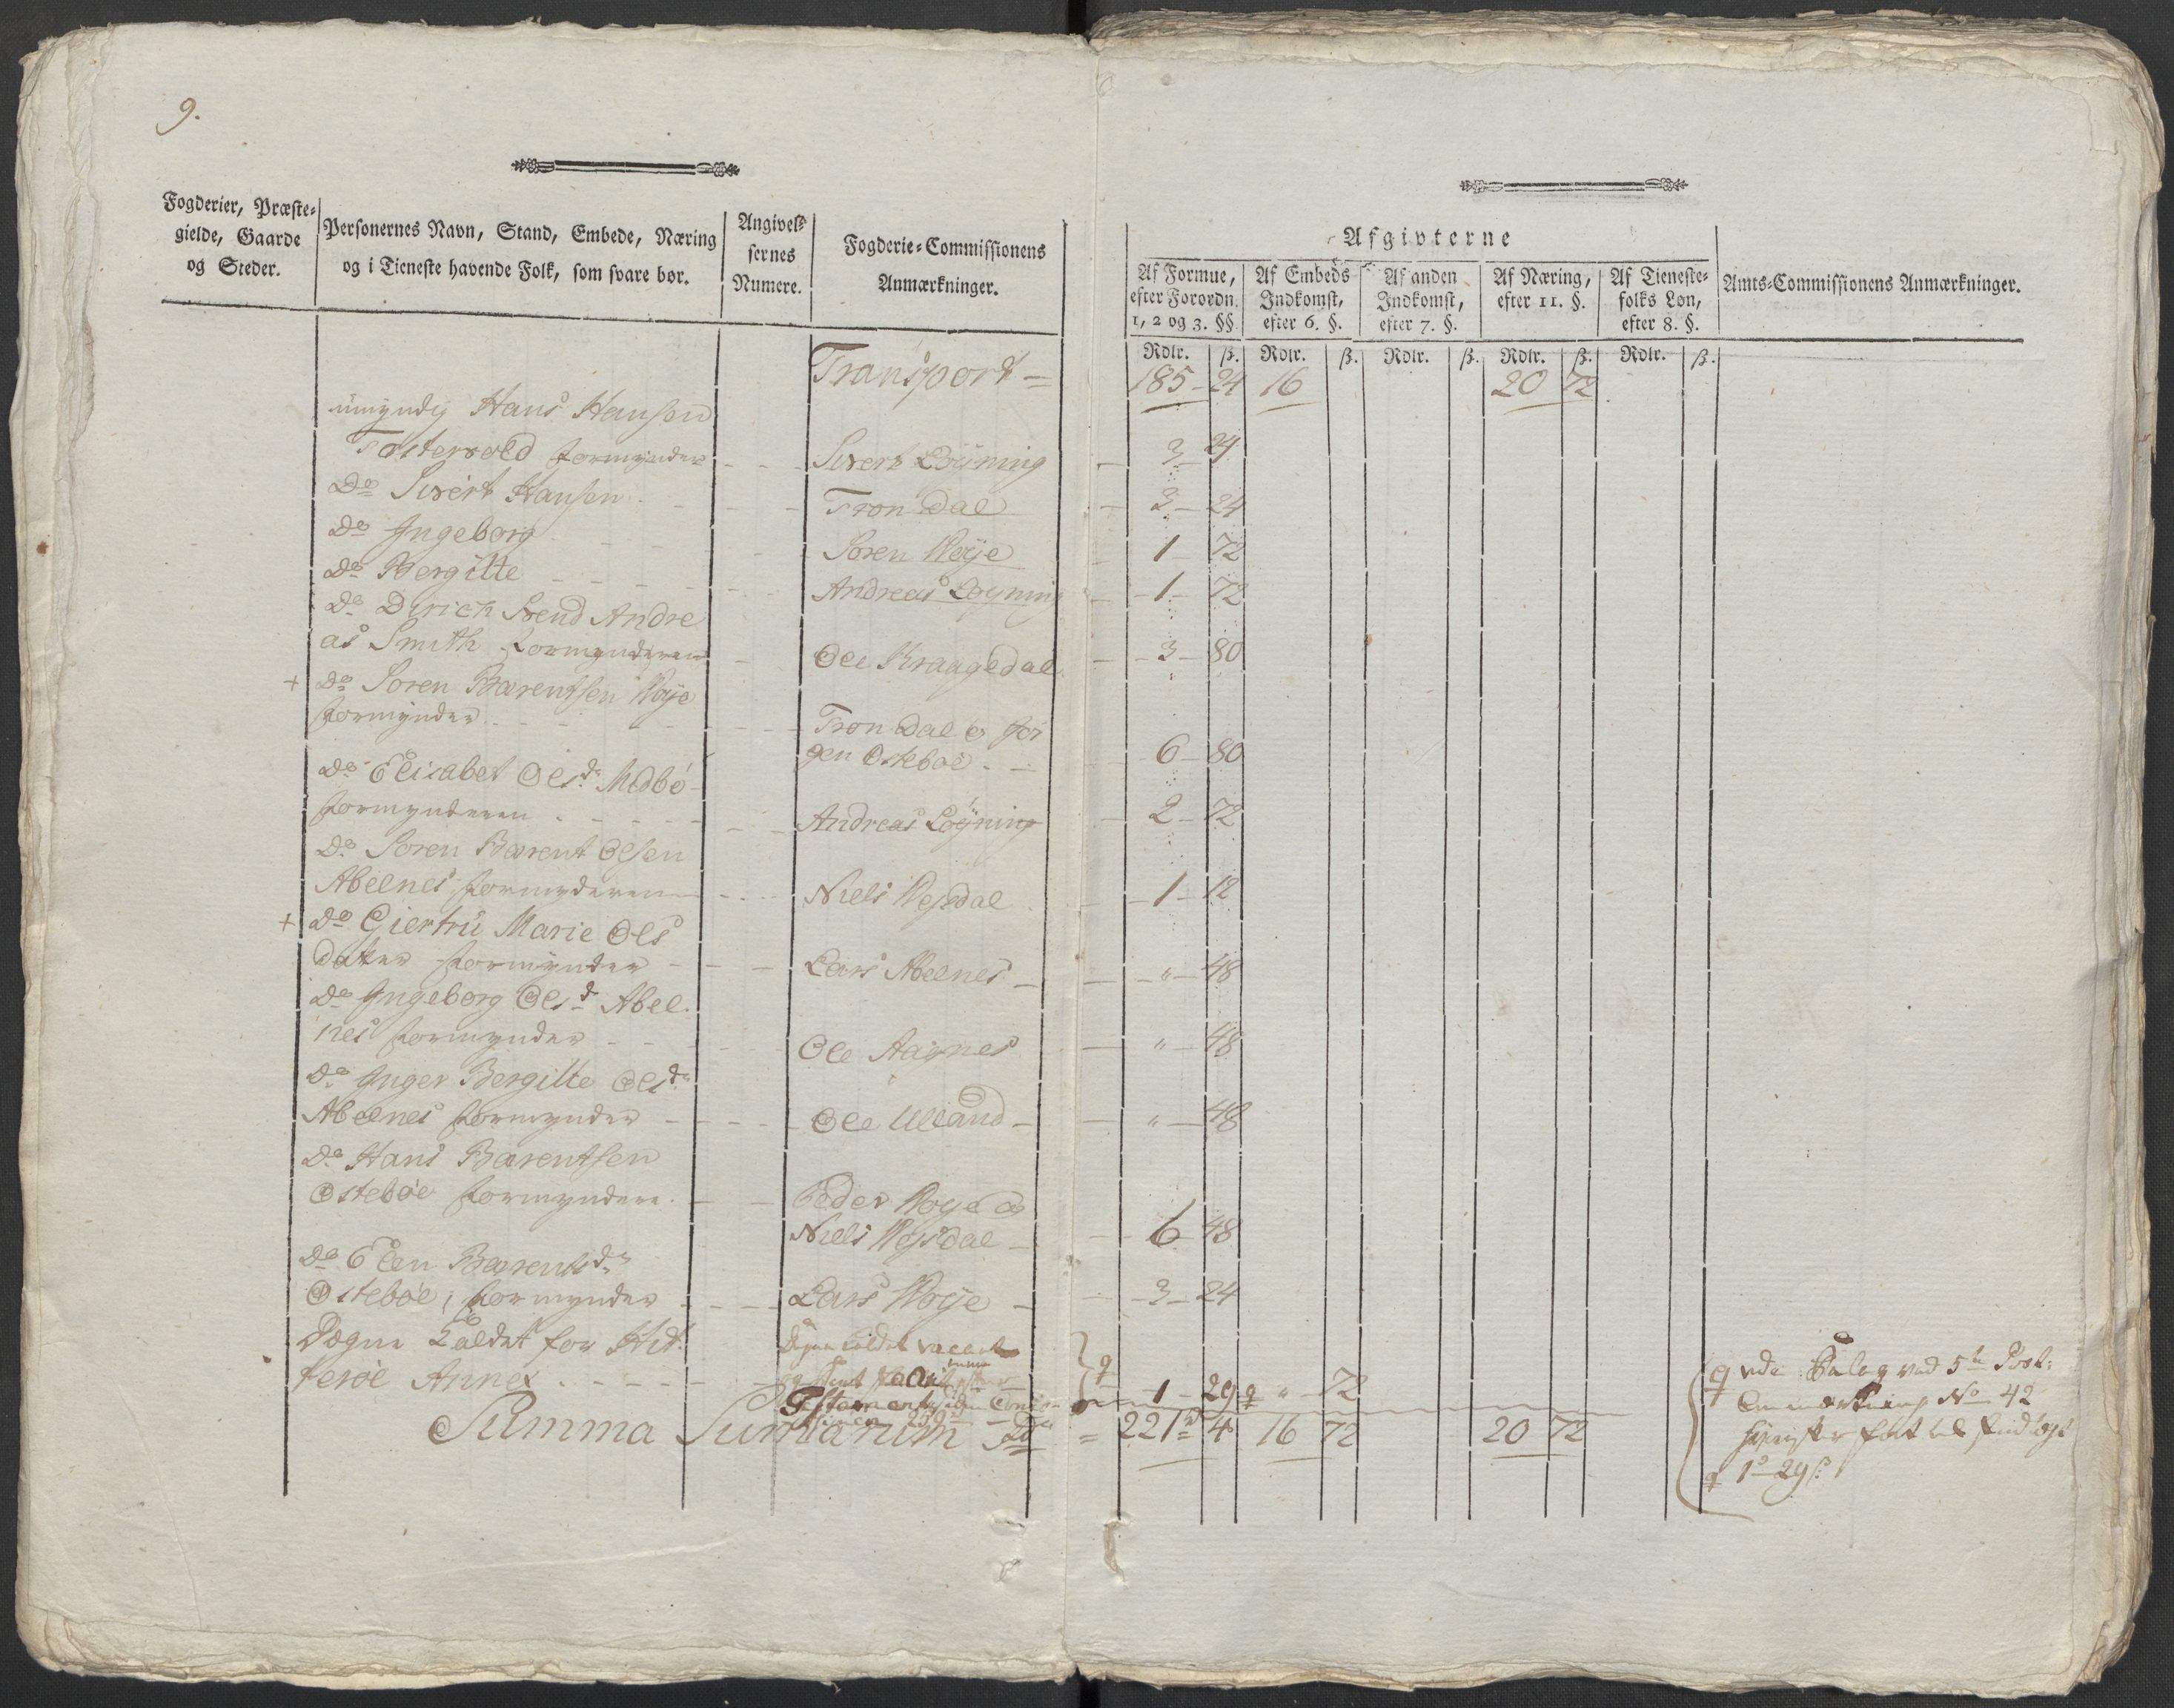 9.
Fogderier, Præste-
gielde, Gaarde
og Steder.
Personernes Navn, Stand, Embede, Næring
og i Tieneste havende Folk, som svare bør.
Angivel-
sernes
Numere.
Fogderie-Commissionens
Anmærkninger.
Afgivterne
Af Formue,
efter Forordn.
1, 2 og 3. §§.
Af Embeds
Indkomst,
efter 6. §.
Af anden
Indkomst,
efter 7. §.
Af Næring,
efter 11. §.
Af Tieneste-
folks Løn,
efter 8. §.
Amts-Commissionens Anmærkninger.
Rdlr. ß. Rdlr. ß. Rdlr. ß. Rdlr. ß. Rdlr. ß.
Transport = 185 - 24 16 20 72
umyndig Hans Hansen
Tostervold formynder - - - Sivert Löyning - 3 - 24
Do Sivert Hansen - - - Tron Dal - 3 - 24
Do Ingeborg - - - Soren Røye - 1 - 72
Do Bergitte - - - Andreas Løyning - 1 - 72
Do Dirich Svend Andre
as Smith formynderen - Ole Kraagedal - 3 - 80
+ Do Soren Barentsen Røye
formynder - - - Tron Dal & Jør
gen Ostebøe - 6 - 80
Do Elisabet Olsdr Medbø
formynderen - - - Andreas Löyning - 2 - 72
Do Soren Barent Olsen
Abelnes formyderen - - - Niels Resdal - 1 - 12
+ Do Giertru Marie Ols
dater formynder - - - Lars Abelnes - " - 48
Do Ingeborg Olsd Abel
nes formynder - - - Ole Aagnes - " - 48
Do Inger Bergitte Olsdr
Abelnes formynder - - - Ole Ulland - " - 48
Do Hans Barentsen
Ostebøe formyndere - - Peder Røye &
Niels Resdal - 6 - 48
Do Elen Barentsdr
Ostebøe, formynder - - - Lars Røye - 3 - 24
Degne Kaldet for Hit-
terøe Annex - - - Degne Kaldet vacant
1 - 29 q " 72
Summa Summarum = 221 4 16 72 20 72
q vide Bilag ved 5te Post:
Anmærkning No 42
q 1 - 29 ß